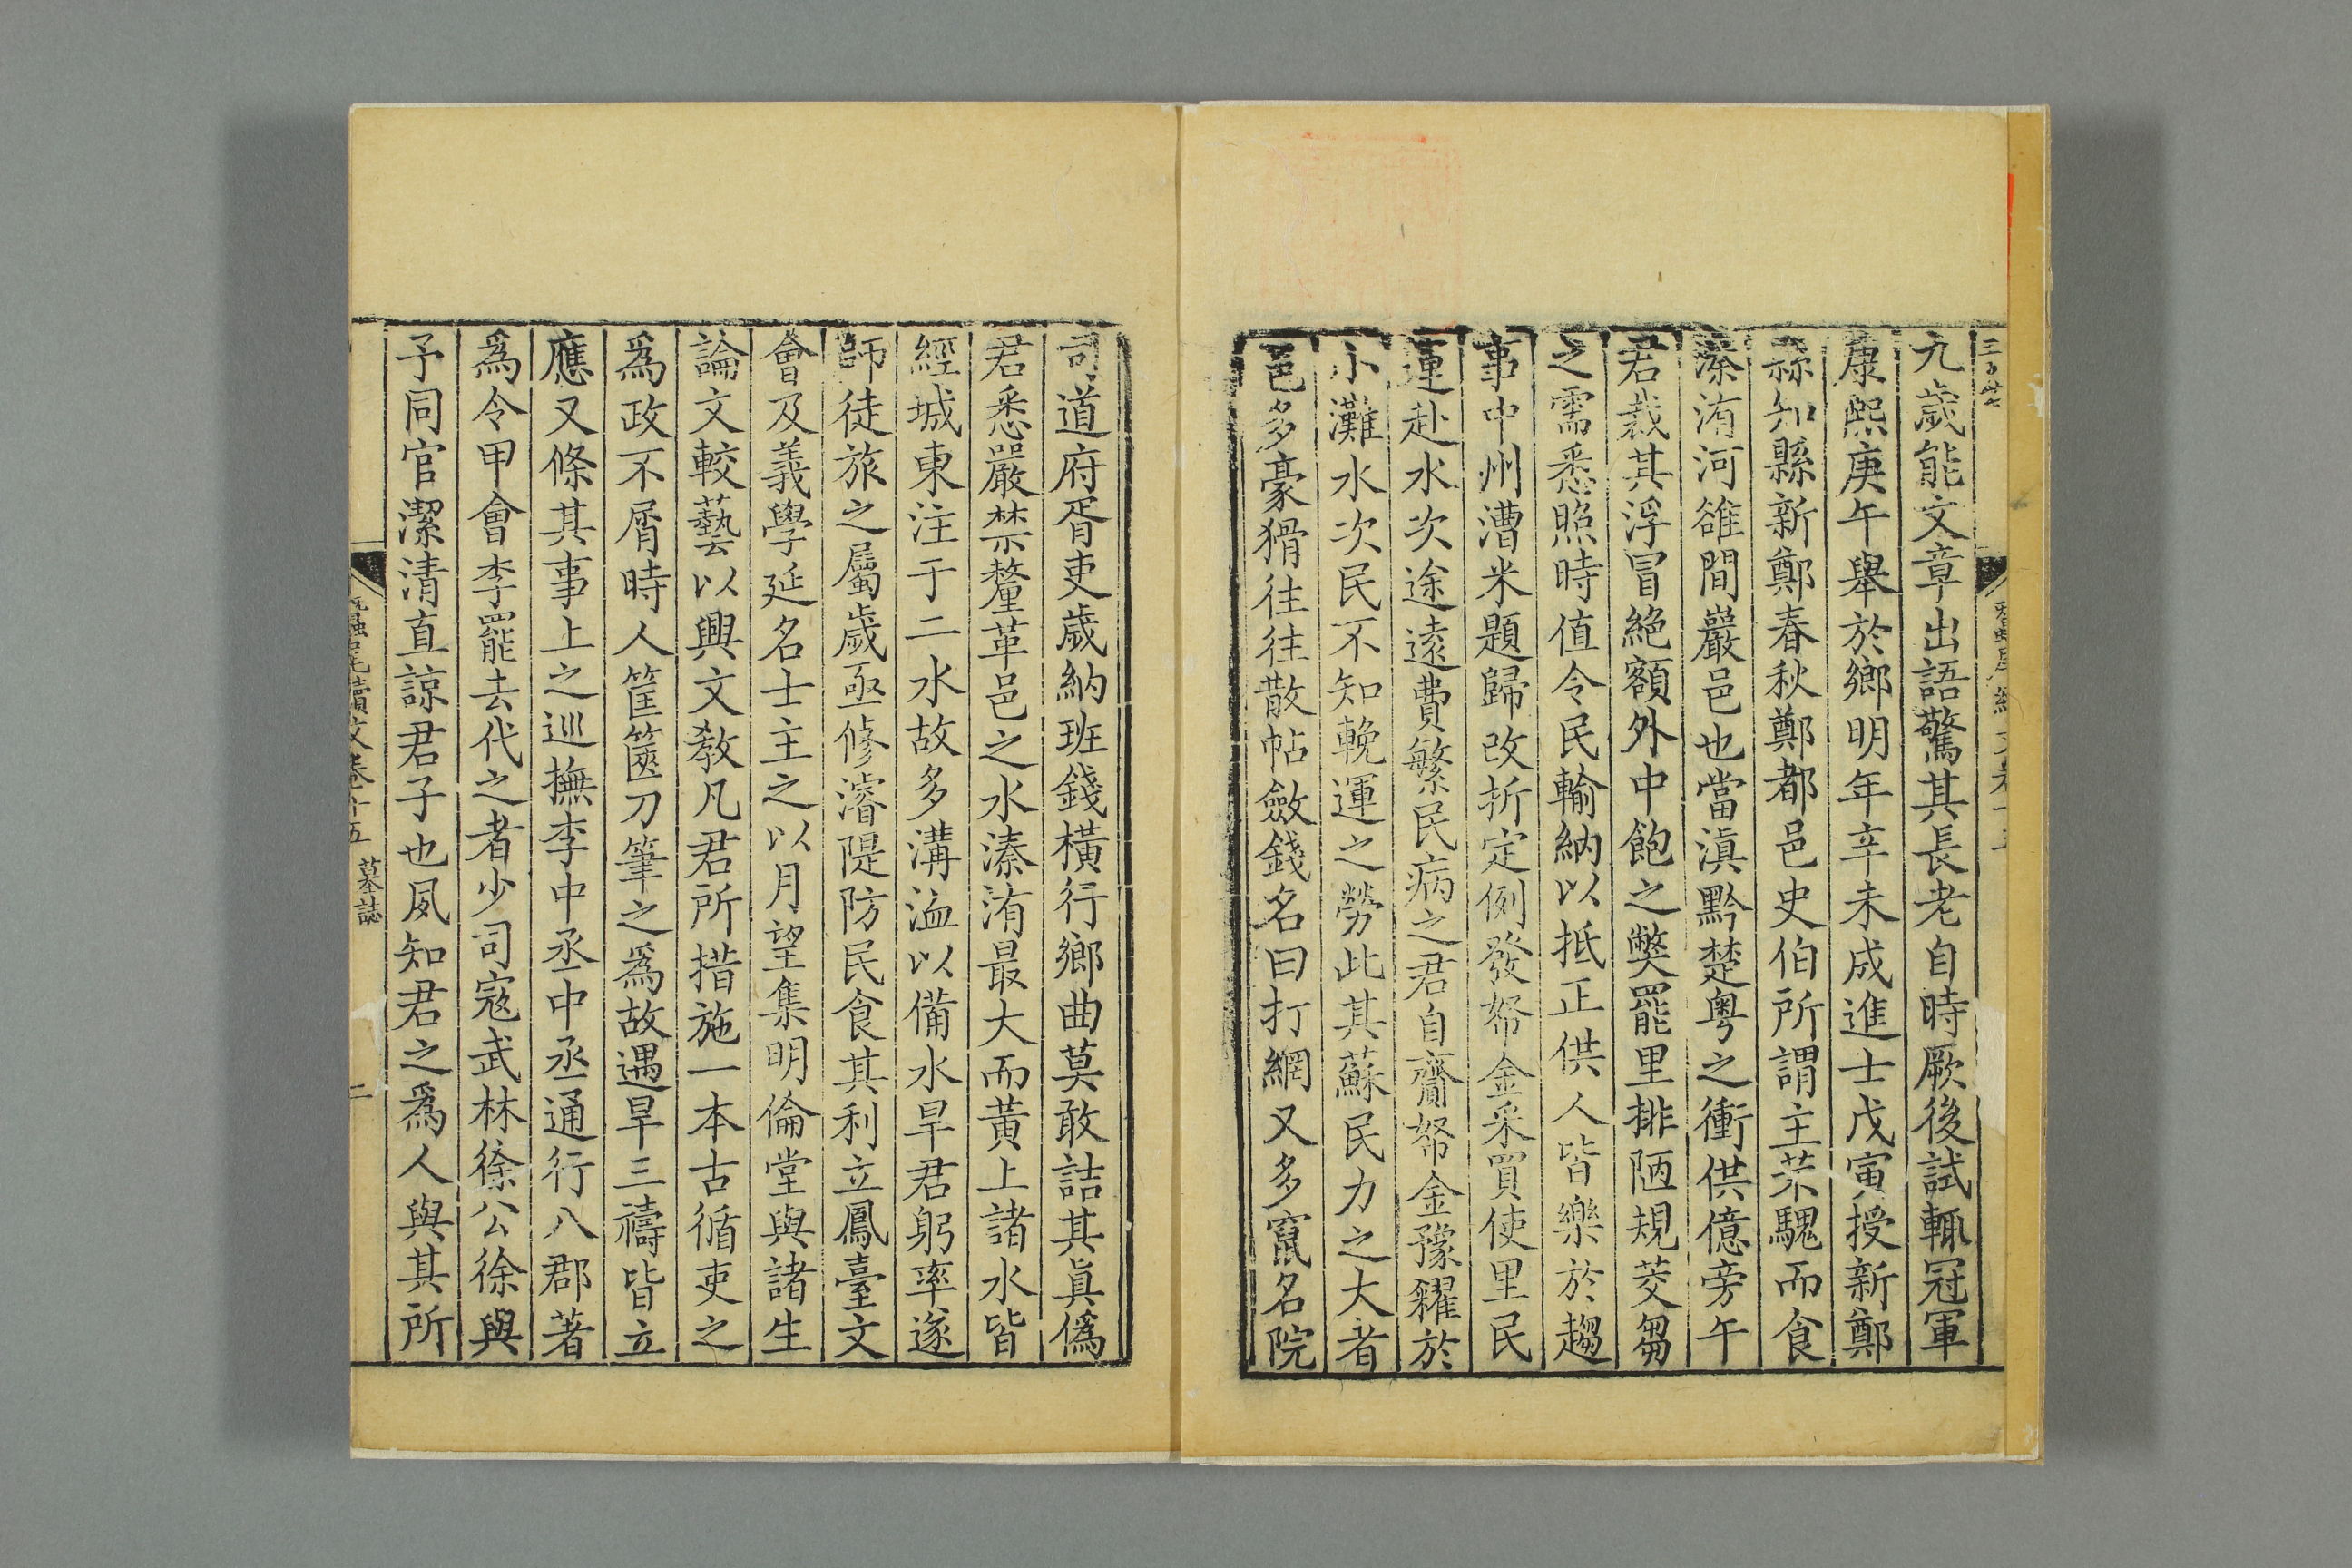 三百卅七
九歲能文章出語驚其長老自時厥後試輒冠軍
康熙庚午舉於鄉明年辛未成進士戊寅授新鄭
縣知縣新鄭春秋鄭都邑史伯所謂主芣騩而食
溱洧河雒間巖邑也當滇黔楚粵之衝供億旁午
君裁其浮冒絕額外中飽之獘罷里排陋規茭芻
之需悉照時值令民輸納以抵正供人皆樂於趨
事中州漕米題歸改折定例發帑金采買使里民
運赴水次途遠費繁民病之君自齎帑金豫糴於
小灘水次民不知輓運之勞此其蘇民力之大者
邑多豪猾往往散帖斂錢名曰打網又多竄名院
司道府胥吏歲納班錢橫行鄉曲莫敢詰其眞僞
君悉嚴禁釐革邑之水溱洧最大而黃上諸水皆
經城東注于二水故多溝洫以備水旱君躬率遂
師徒旅之屬歲亟修濬隄防民食其利立鳳臺文
會及義學延名士主之以月望集明倫堂與諸生
論文較藝以興文教凡君所措施一本古循吏之
爲政不屑時人筐篋刀筆之爲故遇旱三禱皆立
應又條其事上之巡撫李中丞中丞通行八郡著
爲令甲會李罷去代之者少司寇武林徐公徐與
予同官潔清直諒君子也夙知君之爲人與其所
蠶尾續文卷十五 墓誌 二